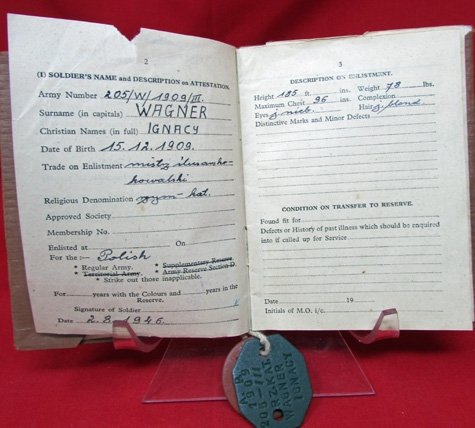 2
(1) SOLDIER'S NAME and DESCRIPTION on ATTESTATION.
Army Number 205/W/1909/III.
Surname (in capitals) WAGNER
Christian Names (in full) IGNACY
Date of Birth 15.12.1909.
Trade on Enlistment mistz ślusarsko-
kowalski
Religious Denomination rzym kat.
Approved Society
Membership No.
Enlisted at On
For the :— Polish
* Regular Army. * Supplementary Reserve.
* Territorial Army. * Army Reserve Section D.
* Strike out those inapplicable.
For years with the Colours and years in the
Reserve.
Signature of Soldier
Date 2.8.1946.
3
DESCRIPTION ON ENLISTMENT.
Height 185 ft. ins. Weight 78 lbs.
Maximum Chest 96 ins. Complexion
Eyes nieb. Hair blond
Distinctive Marks and Minor Defects
CONDITION ON TRANSFER TO RESERVE.
Found fit for
Defects or History of past illness which should be enquired
into if called up for Service
Date 19
Initials of M.O. i/c.
1909
III
RZ.KAT.
WAGNER
IGNACY